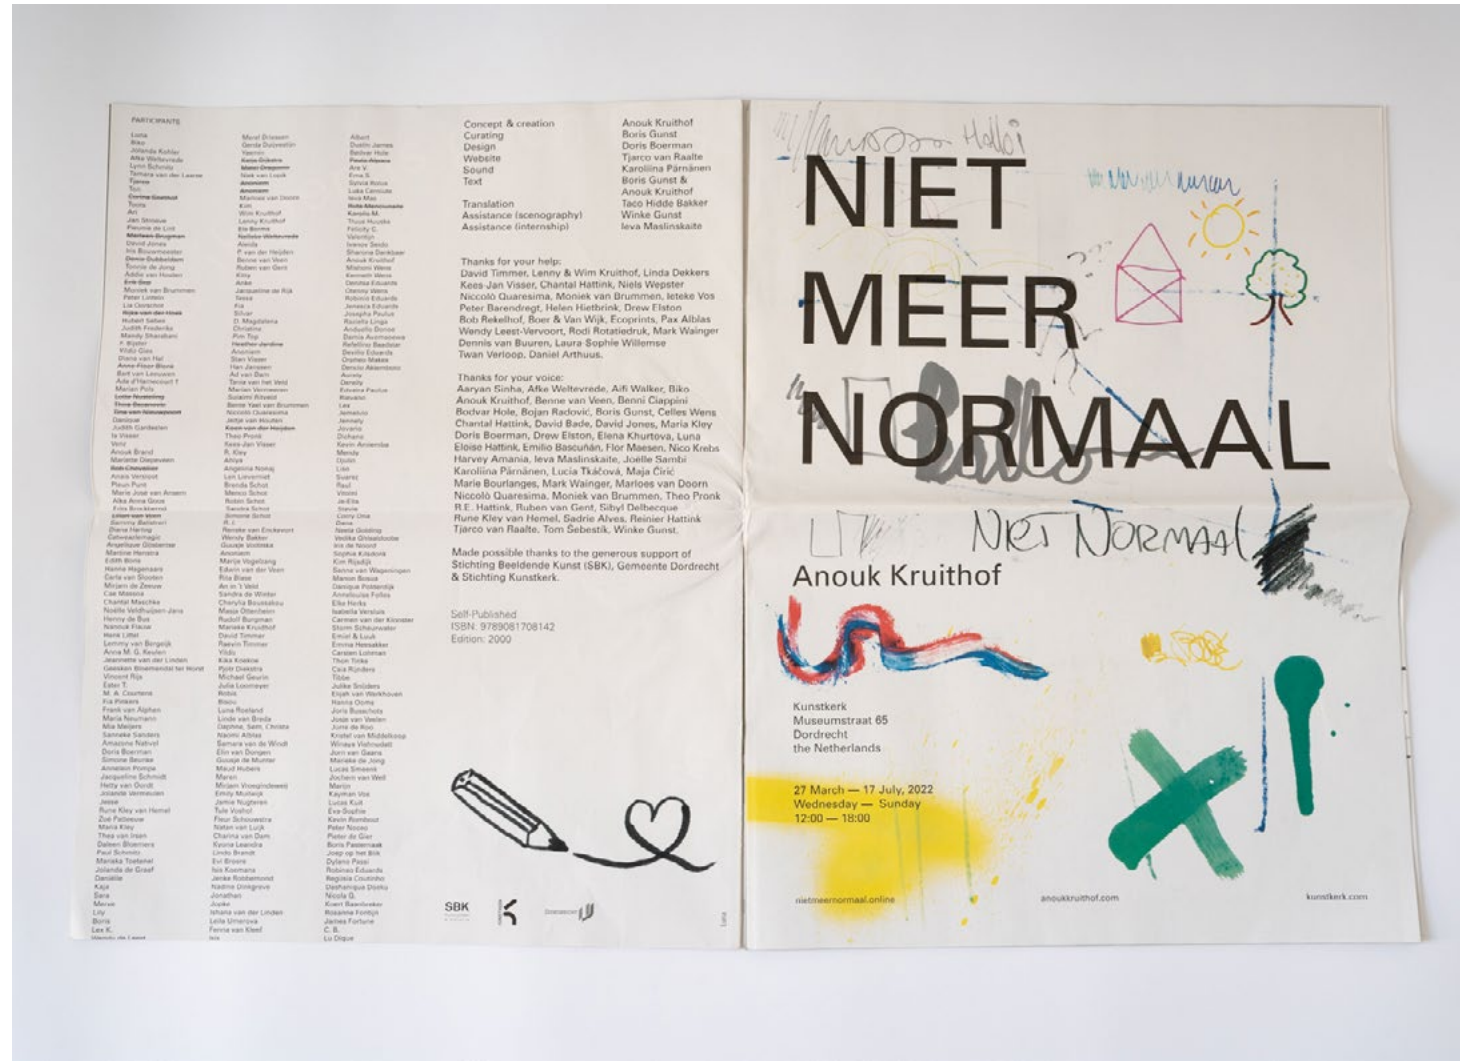 PARTICIPANTS
Luna
Biko
Jolanda Kohler
Afke Weltevrede
Lynn Schmitz
Tamara van der Laarse
Tjarco
Ton
Toots
Ari
Jan Strooue
Fleurnie de Lint
Marleen Brugman
David Jones
Iris Bouwmeester
Denis Dubbeldam
Tonnie de Jong
Addie van Houten
Erik Dop
Moniek van Brummen
Peter Lintein
Lia Oorschot
Rijke van der Hoek
Hubert Selten
Judith Frederiks
Mandy Sharebani
F. Bijster
Yildiz Gies
Diana van Hal
Anne-Floor Blovs
Bart van Leeuwen
Ada d'Harnecourt †
Marian Pols
Danique
Judith Gardeslen
Ia Visser
Veriz
Anouk Brand
Mariette Diepeveen
Rob Chevallier
Anaïs Verstoot
Pleun Punt
Marie José van Ansem
Alka Anna Goos
Diana Hartog
Catweazlemagic
Angelique Gijsbertse
Martine Henstra
Edith Bons
Hanna Hagenaars
Carla van Slooten
Mirjam de Zeeuw
Cae Massna
Chantal Maschke
Noëlle Veldhuijsen-Jans
Henny de Bus
Nanouk Flause
Henk Littel
Lemmy van Bergeijk
Anna M. G. Keulen
Jeannette van der Linden
Geesken Bloemendal ter Horst
Vincent Rijs
Ester T.
M. A. Courtens
Kia Pinkers
Frank van Alphen
Maria Neumann
Mia Meijers
Sanneke Sanders
Amazone Nativel
Doris Boerman
Simone Beunke
Annelein Pompe
Jacqueline Schmidt
Hetty van Oordt
Jolande Vermeulen
Jesse
Rune Kley van Hemel
Zoë Patteeuw
Maria Kley
Thea van Irsen
Daleen Bloemers
Paul Schmitz
Mariska Toetenel
Jolanda de Graaf
Daniëlle
Kaja
Sara
Merve
Lily
Boris
Lex K.
Wendy de Leest
Merel Driessen
Gerda Duyvestijn
Yasmin
Katja Dijkstra
Niek van Looik
Anoniem
Anoniem
Marloes van Doorn
Kim
Wim Kruithof
Lenny Kruithof
Els Borms
Nelleke Weltevrede
Aleida
P. van der Heijden
Benne van Veen
Ruben van Gent
Kitty
Anke
Jacqueline de Rijk
Tesse
Pia
Siluar
D. Magdalena
Christina
Pim Top
Heather Jardine
Anoniem
Stan Visser
Han Janssen
Ad van Dam
Tania van het Veld
Marian Vermeeren
Sulaimi Altveld
Benne Yael van Brummen
Niccolò Quaresima
Jeltje van Houten
Koen van der Heijden
Theo Pronk
Kees-Jan Visser
R. Kley
Ahlya
Angelina Nokaj
Len Lievernist
Brenda Schot
Menco Schot
Robin Schot
Sandra Schot
Simone Schot
R.J.
Renske van Enckevort
Wendy Bakker
Guusje Vodoska
Anoniem
Marije Vogelzang
Edwin van der Veen
Rita Blase
An in 't Veld
Sandra de Winter
Cherylia Boussakou
Masja Ottenheim
Rudolf Burgman
Marieke Kruidhof
David Timmer
Raevin Timmer
Yildiz
Kika Koekoe
Pjotr Diekstra
Michael Geurin
Julia Loomeyer
Robin
Bisou
Luna Roeland
Linde van Breda
Daphne, Sem, Christa
Naomi Alblas
Samara van de Windt
Elin van Dongen
Guusje de Munter
Maud Hubers
Maren
Mirjam Vroegindeweij
Emily Muilwijk
Jamie Nugteren
Tule Voshol
Fleur Schouwstra
Natan van Luijk
Charina van Dam
Kyona Leandra
Linda Brandt
Evi Broere
Isis Koemans
Jenke Robbemond
Nadine Dinkgreve
Jonathan
Jopke
Ishana van der Linden
Leila Umerova
Fenna van Kleef
Isis
Albert
Dustin James
Bødvar Hole
Are V.
Erna S.
Ieva Mas
Karolis M.
Thuur Huyske
Felicity C.
Valentijn
Ivanov Seido
Sharona Dankbaar
Anouk Kruithof
Mishomi Wens
Kenneth Wens
Denitsa Eduards
Chenny Wens
Robinio Eduards
Jenesja Eduards
Josepha Paulus
Raziella Linga
Anduello Donoe
Rafellino Baadslar
Deville Eduards
Orpheio Makes
Aurora
Densily
Lex
Jemeluro
Jennely
Jovanio
Dichano
Mendy
Djulin
Lisa
Suarez
Raul
Vinzini
Stevie
Corry Oma
Dana
Neeta Guiding
Iris de Noord
Sophie Krisdons
Kim Rijsdijk
Sanne van Wageningen
Manon Bossa
Danique Pottendijk
Annelouise Folles
Elke Herks
Isabella Versluis
Carmen van der Klooster
Storm Scheurwater
Emiel & Luuk
Emma Hessakker
Carsten Lohman
Thon Tinke
Caia Ründers
Tibbe
Julike Snijders
Elijah van Werkhoven
Hanna Ooms
Joris Busschots
Josje van Veelen
Jorre de Roo
Kristel van Middelkoop
Winaya Vishnudatt
Jurn van Gaans
Marieke de Jong
Lucas Smeenk
Jochem van Well
Marijn
Kayman Vos
Lucas Kuit
Eva-Sophie
Kevin Rombout
Peter Nooso
Pieter de Gier
Boris Pasternaak
Joep op het Blik
Dylano Passi
Robinao Eduards
Regissia Coutinho
Deshanique Dooku
Nicola G.
Koert Baanbreker
Rosanne Fontijn
James Fortune
C. B.
Lu Dique
Concept & creation Anouk Kruithof
Curating Boris Gunst
Design Doris Boerman
Website Tjarco van Raalte
Sound Karoliina Pärnänen
Text Boris Gunst &
Anouk Kruithof
Translation Taco Hidde Bakker
Assistance (scenography) Winke Gunst
Assistance (internship) Ieva Maslinskaite
Thanks for your help:
David Timmer, Lenny & Wim Kruithof, Linda Dekkers
Kees-Jan Visser, Chantal Hattink, Niels Wepster
Niccolò Quaresima, Moniek van Brummen, Ieteke Vos
Peter Barendregt, Helen Hietbrink, Drew Elston
Bob Rekelhof, Boer & Van Wijk, Ecoprints, Pax Alblas
Wendy Leest-Vervoort, Rodi Rotatiedruk, Mark Wainger
Dennis van Buuren, Laura Sophie Willemse
Twan Verloop, Daniel Arthuus.
Thanks for your voice:
Aaryan Sinha, Afke Weltevrede, Aifi Walker, Biko
Anouk Kruithof, Benne van Veen, Benni Ciappini
Bodvar Hole, Bojan Radović, Boris Gunst, Celles Wens
Chantal Hattink, David Bade, David Jones, Maria Kley
Doris Boerman, Drew Elston, Elena Khurtova, Luna
Eloise Hattink, Emilio Bascuñán, Flor Maesen, Nico Krebs
Harvey Amania, Ieva Maslinskaite, Joëlle Sambi
Karoliina Pärnänen, Lucia Tkáčová, Maja Ćirić
Marie Bourlanges, Mark Wainger, Marloes van Doorn
Niccolò Quaresima, Moniek van Brummen, Theo Pronk
R.E. Hattink, Ruben van Gent, Sibyl Delbecque
Rune Kley van Hemel, Sadrie Alves, Reinier Hattink
Tjarco van Raalte, Tom Šebestík, Winke Gunst.
Made possible thanks to the generous support of
Stichting Beeldende Kunst (SBK), Gemeente Dordrecht
& Stichting Kunstkerk.
Self-Published
ISBN: 9789081708142
Edition: 2000
SBK
Luna
Hallo
NIET
MEER
NORMAAL
NIET NORMAAL
Anouk Kruithof
Kunstkerk
Museumstraat 65
Dordrecht
the Netherlands
27 March — 17 July, 2022
Wednesday — Sunday
12:00 — 18:00
nietmeernormaal.online
anoukkruithof.com
kunstkerk.com